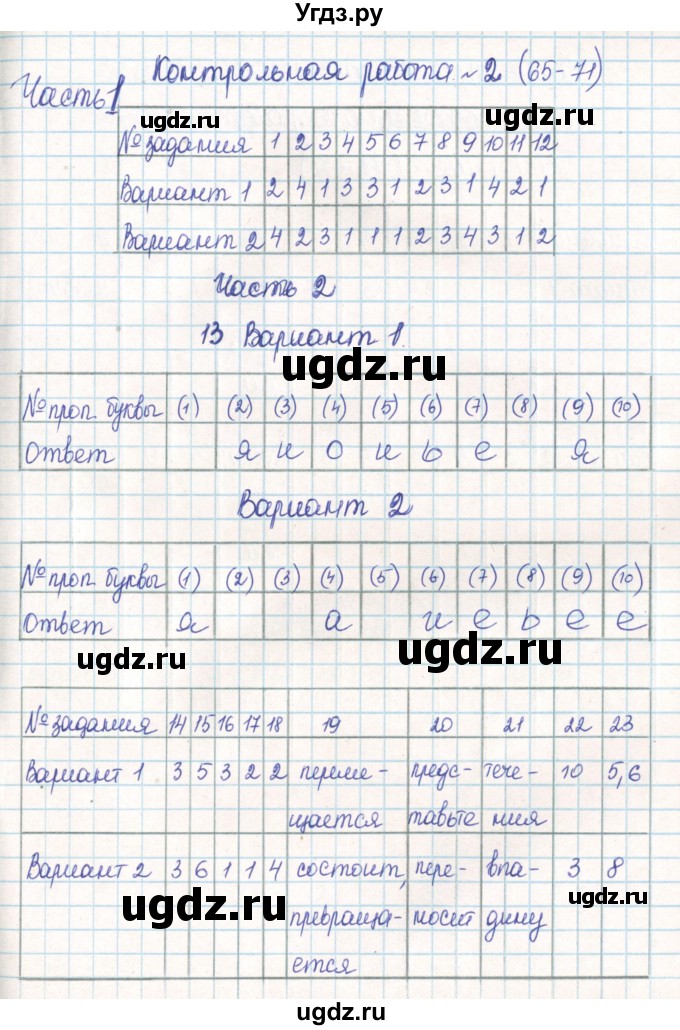 Угдз.ру
Контрольная работа №2 (65-71)
Часть 1
ugdz.ru ugdz.ru
№ задания 1 2 3 4 5 6 7 8 9 10 11 12
Вариант 1 2 4 1 3 3 1 2 3 1 4 2 1
ugdz.ru
Вариант 2 4 2 3 1 1 1 2 3 4 3 1 2
Часть 2
13 Вариант 1.
ugdz.ru
№ проп. буквы (1) (2) (3) (4) (5) (6) (7) (8) (9) (10)
Ответ я и о и ь е я
Вариант 2
ugdz.ru
№ проп. буквы (1) (2) (3) (4) (5) (6) (7) (8) (9) (10)
Ответ я а и е ь е е
ugdz.ru ugdz.ru
№ задания 14 15 16 17 18 19 20 21 22 23
Вариант 1 3 5 3 2 2 переме- предс- тече- 10 5,6
щается тавьте ния
Вариант 2 3 6 1 1 4 состоит, пере- впа- 3 8
ugdz.ru ugdz.ru
превраща- носит дину
ется
ugdz.ru